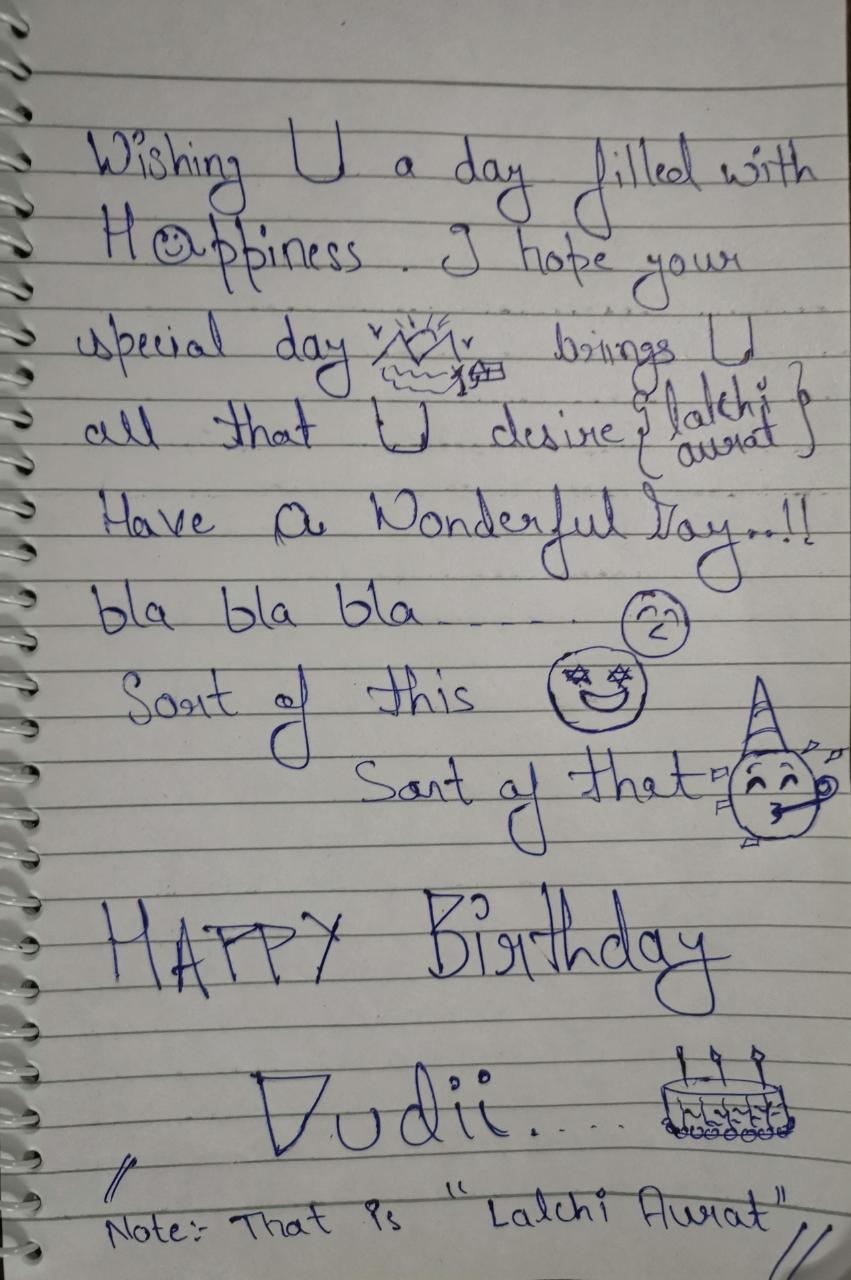 Wishing U a day filled with
Happiness. I hope your
special day brings U
all that U desire {lalchi
aurat}
Have a Wonderful Day..!!
bla bla bla.......
Sort of this
Sort of that
HAPPY Birthday
Dudii.....
// Note:- That is "Lalchi Aurat" //